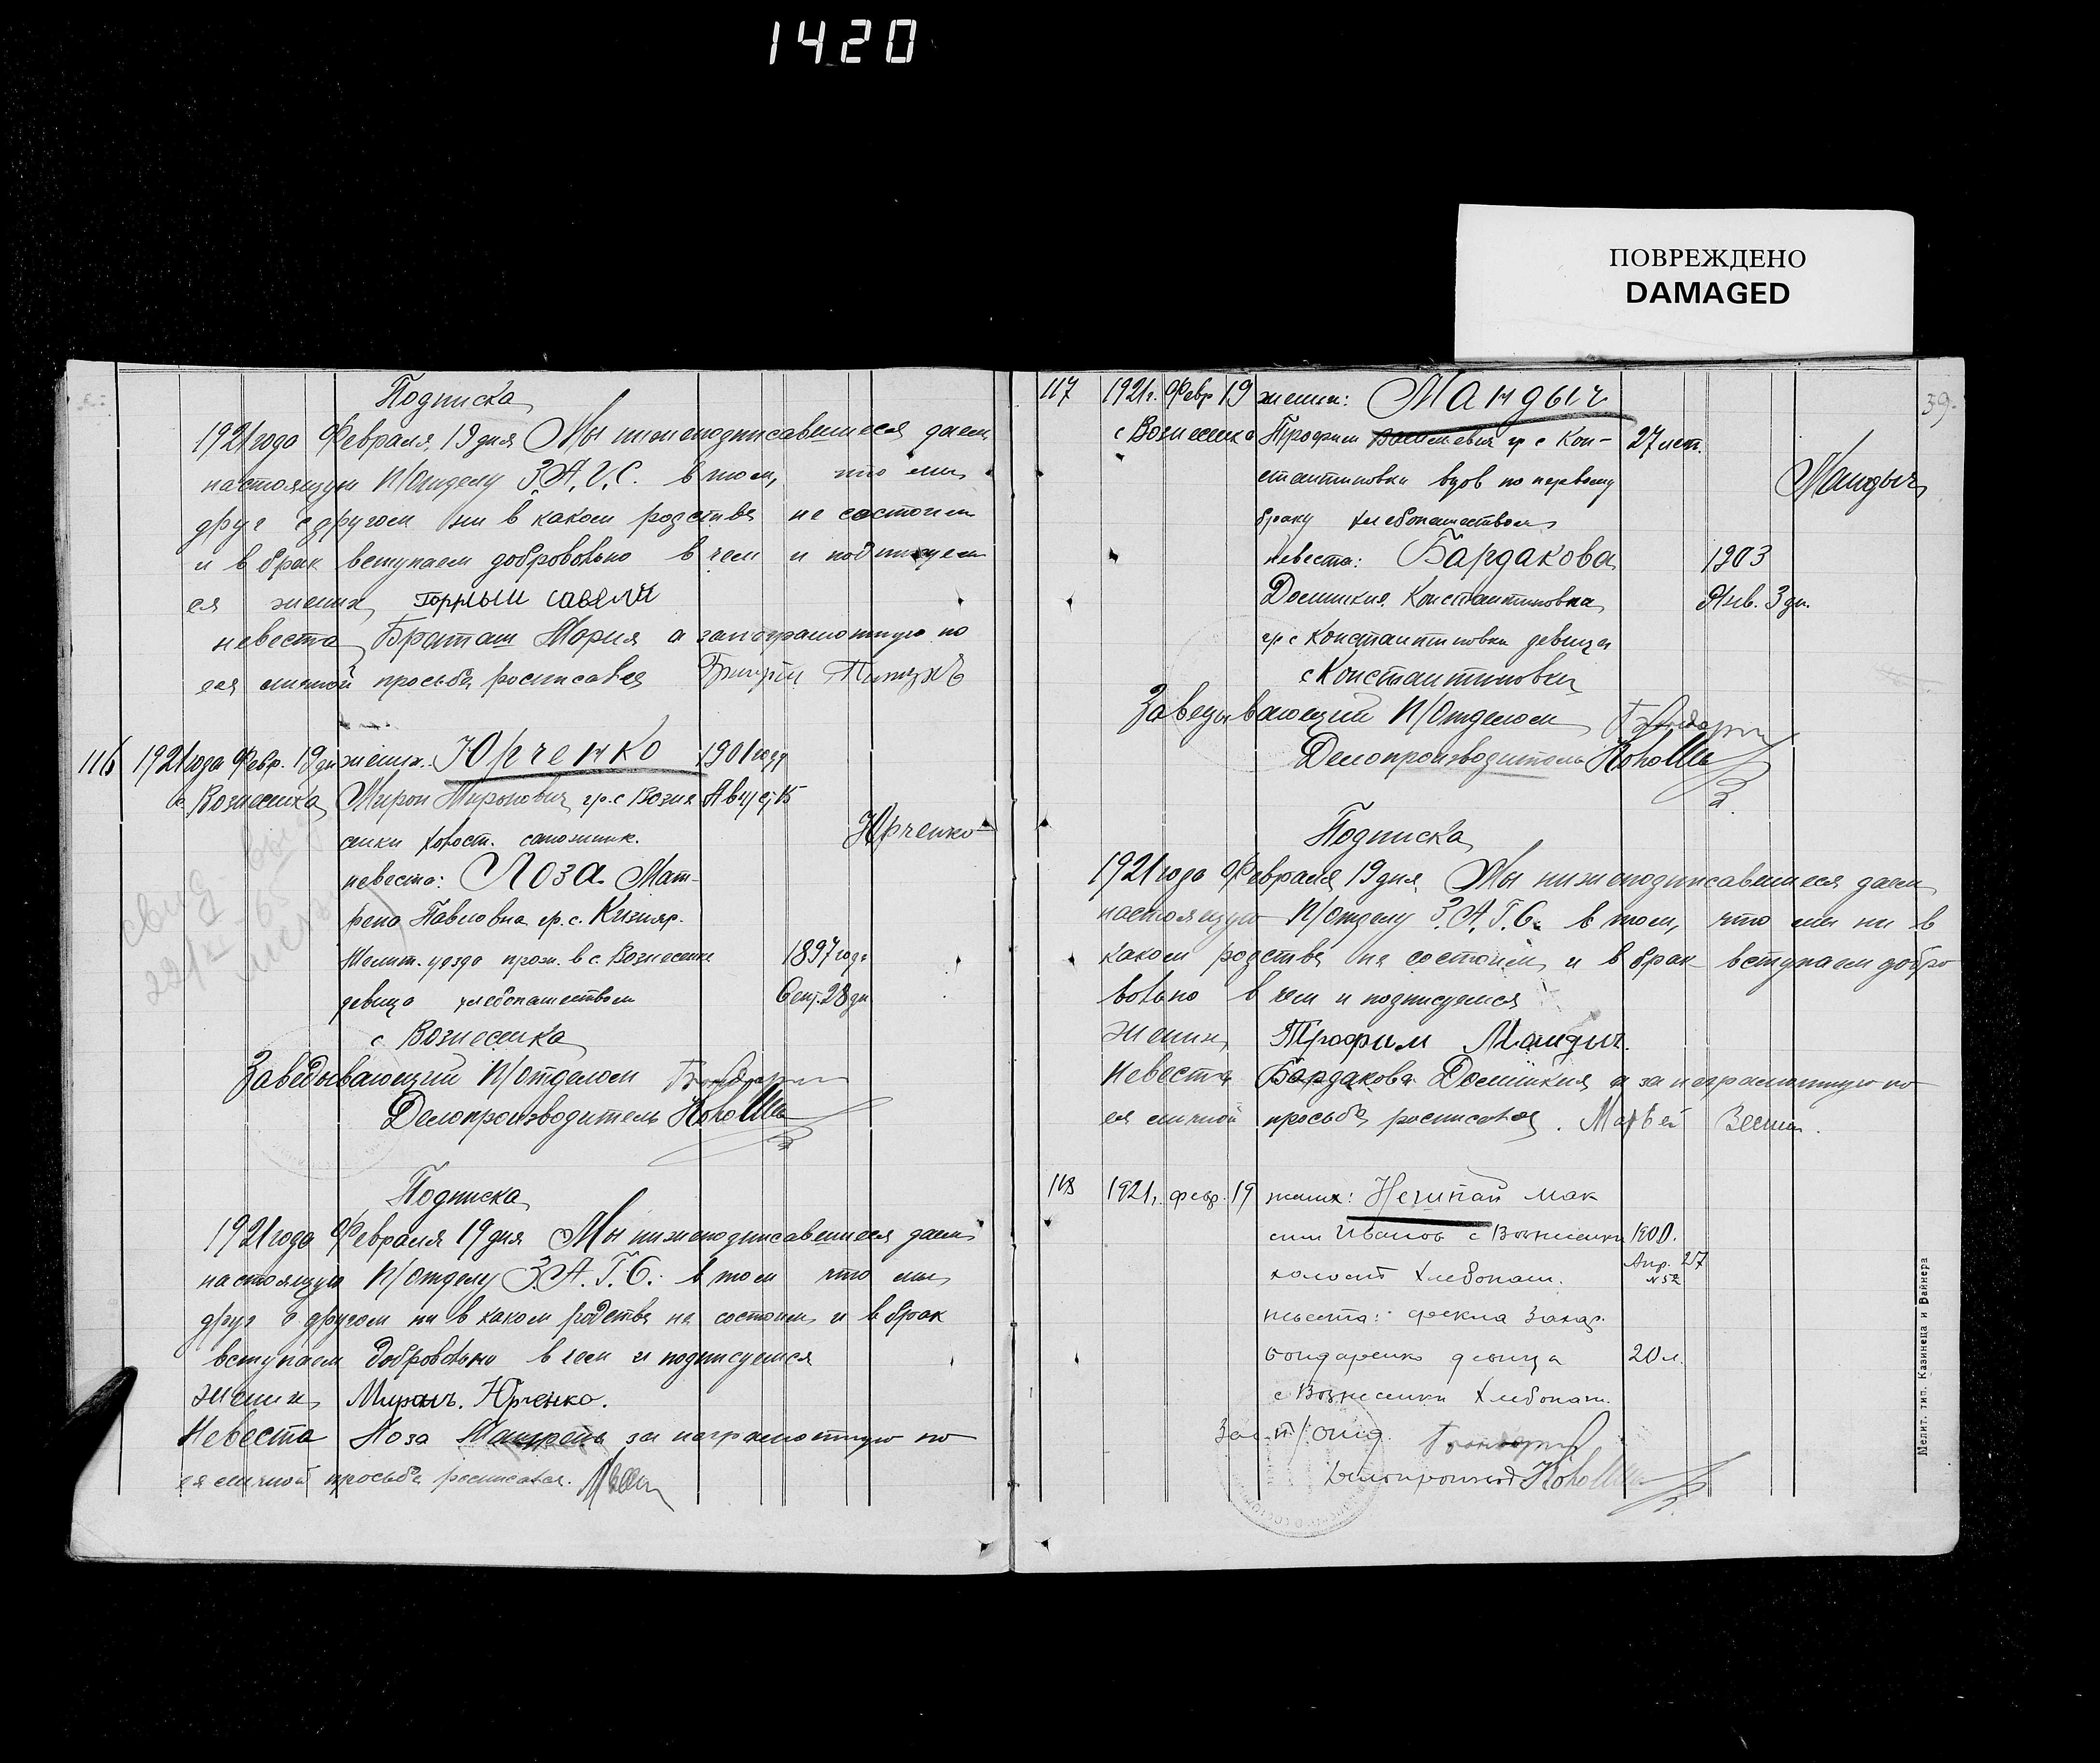 1420
ПОВРЕЖДЕНО
DAMAGED
Подписка
1921 года Февраля 19 дня Мы нижеподписавшиеся даем
настоящую П/Отделу З.А.Г.С. в том, что мы
друг с другом ни в каком родстве не состоим
и в брак вступаем добровольно в чем и подписуем
ся жених Горлый савелй
невеста Браташ Мария а за неграмотную по
ея личной просьбе росписался Григрій
116 1921 года Февр. 19 дн жених. Юрченко 1901 году
с. Вознесенка Мирон Миронович гр. с Возне Август 15
сенки холост. сапожник. Юрченко
невеста: Лоза Мат-
рена Павловна гр. с. Кизияр.
Мелит. уезда прож. в с. Вознесенке 1897 года
девица хлебопашеством Сент. 28 дн
с Вознесенка
свид выд
22/XI 65
Заведывающий П/отделом
Делопроизводитель
Подписка
1921 года Февраля 19 дня Мы нижеподписавшиеся даем
настоящую П/отделу З.А.Г.С. в том что мы
друг с другом ни в каком родстве не состоим и в брак
вступаем добровольно в чем и подписуемся
Жених Миронъ. Юрченко.
Невеста Лоза Матрена за неграмотную по
ея личной просьбе росписался.
39.
117 1921 г. Февр 19 жених: Мандыч
с Вознесенка Трофим Васильевич гр с Кон- 27 лет.
стантиновки вдов по первому Мандыч
браку хлебопашеством
невеста: Бардакова 1903
Домникия Константиновна Янв. 3 дн.
гр с Константиновки девица
с Константиновки
Заведывающий П/Отделом
Делопроизводитель
Подписка
1921 года Февраля 19 дня Мы нижеподписавшиеся даем
настоящую П/отделу З.А.Г.С. в том, что мы ни в
каком родстве не состоим и в брак вступаем добро
вольно в чем и подписуемся
Жених Трофим Мандыч.
Невеста Бардакова Домникия а за неграмотную по
ея личной просьбе росписался. Матвей
118 1921 г. февр. 19 жених: Нешпай Мак
сим Иванов с Вознесенки 1900.
холост хлебопаш. Апр. 27
№ 52
невеста: Фекла Захар.
Бондаренко девица 20 л.
с Вознесенки хлебопаш.
Зав. п/отд.
Делопроизвод
Мелит. тип. Казинеца и Вайнера